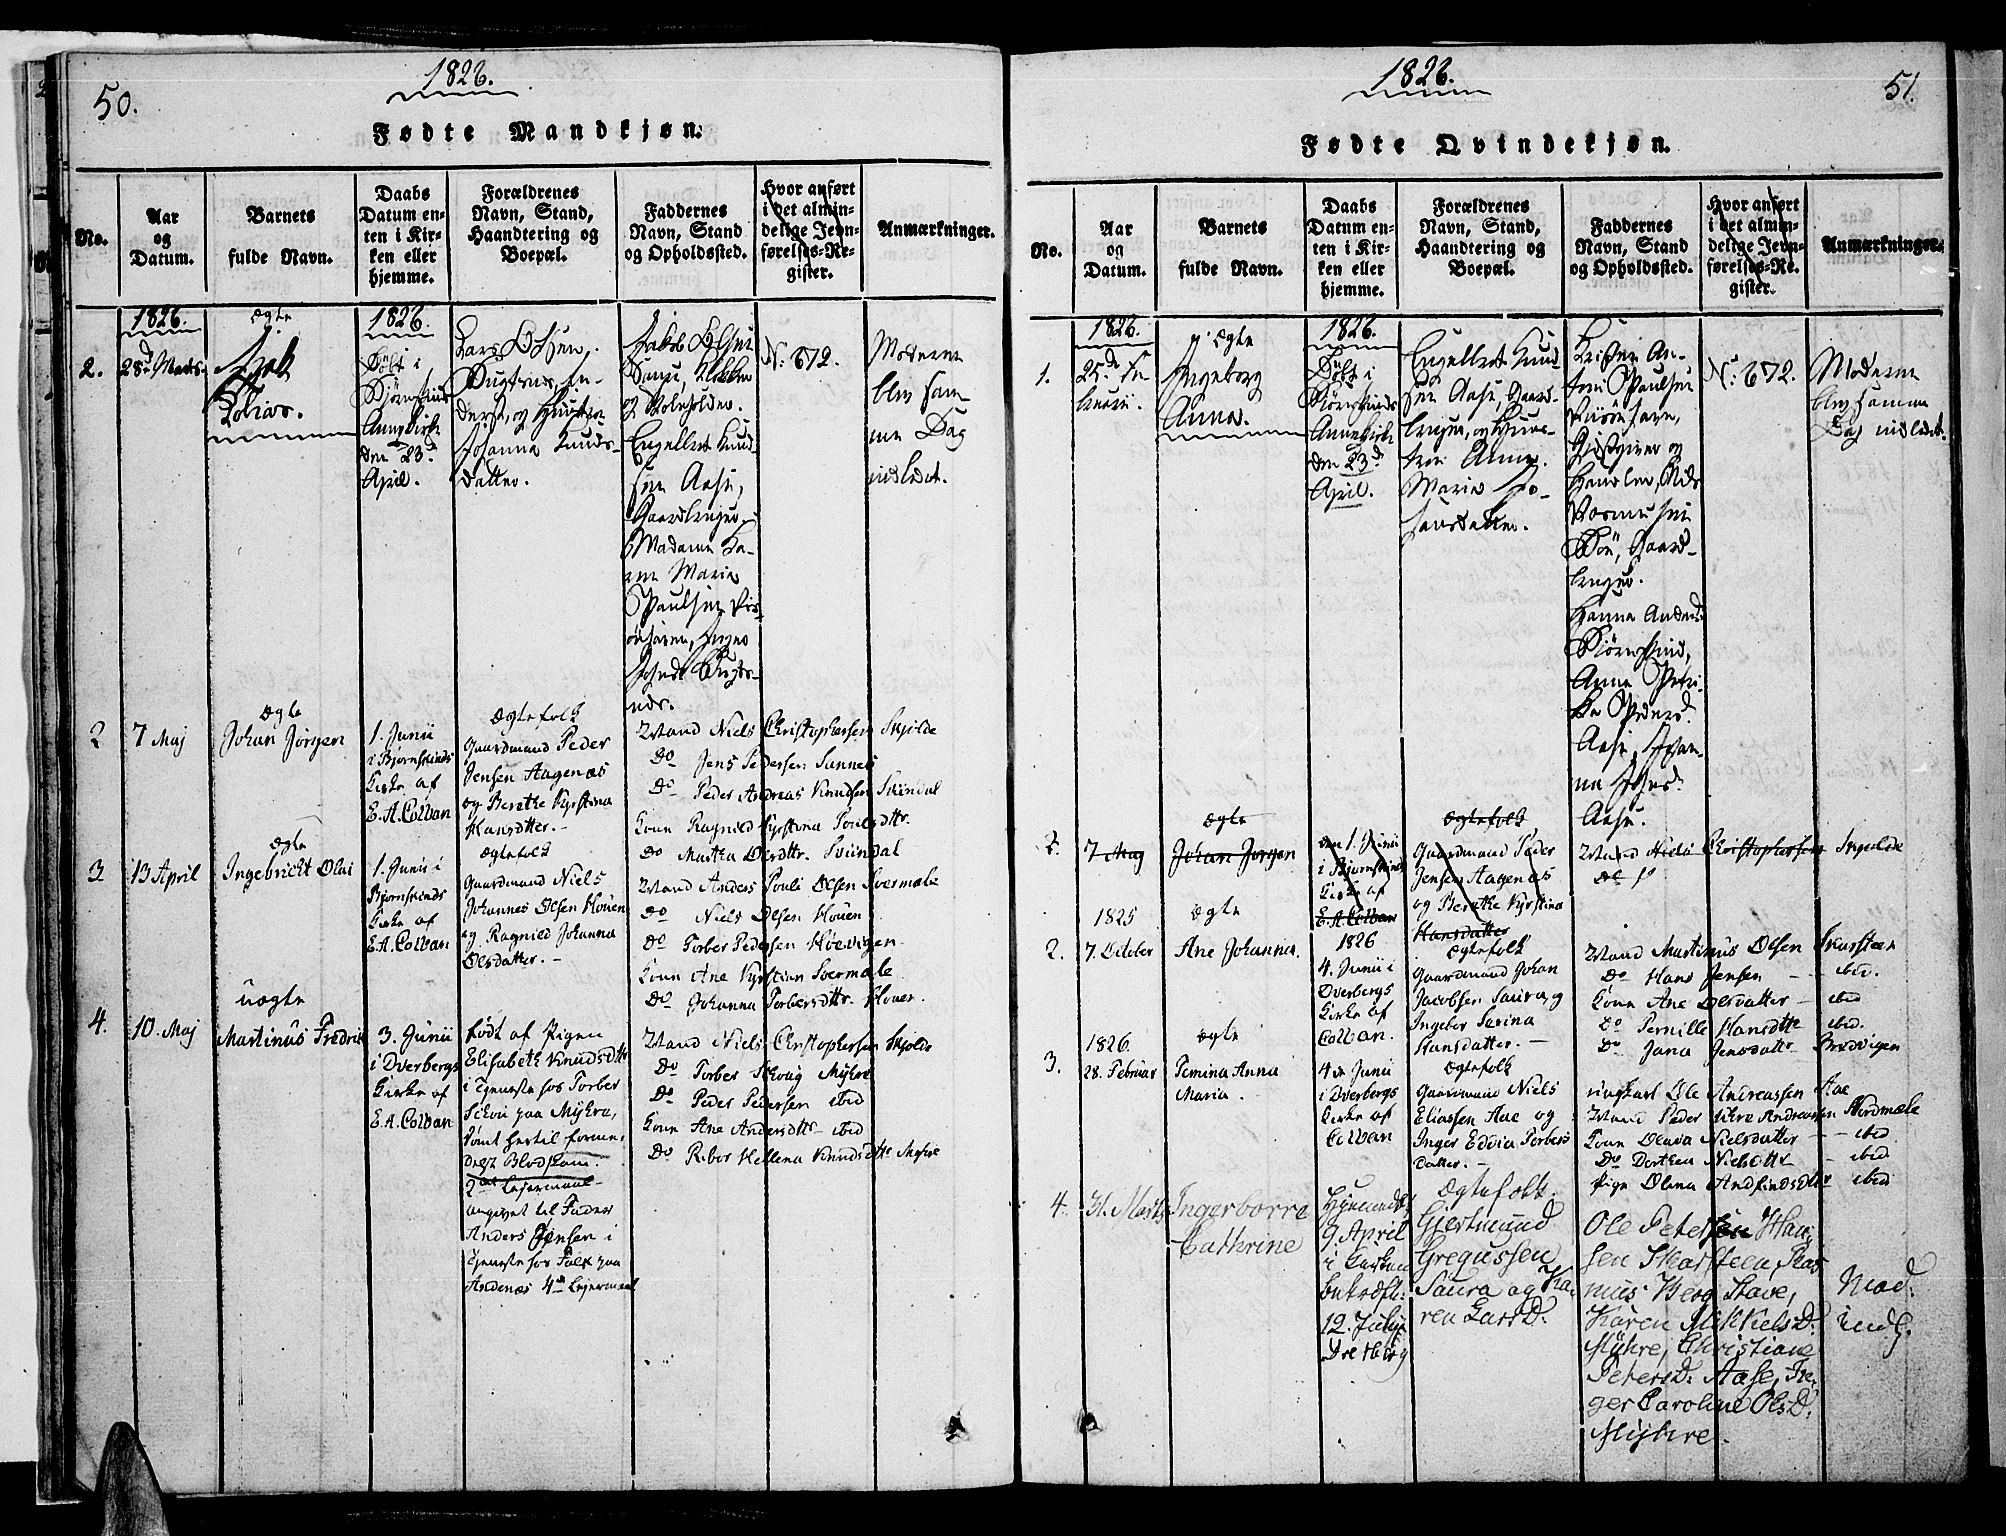 50.
1826.
Fødte Mandkjøn.
No.
Aar
og
Datum.
Barnets
fulde Navn.
Daabs
Datum en-
ten i Kir-
ken eller
hjemme.
Forældrenes
Navn, Stand,
Haandtering og
Boepæl.
Faddernes
Navn, Stand
og Opholdssted.
Hvor anført
i det almin-
delige Jevn-
førelses-Re-
gister.
Anmærkninger.
1826.
2.
28d Marts.
ægte
Tobias.
1826.
Døbt i
Bjørnskinds
Anne Kirke
den 23d
April.
Lars Olsen
Johanna Knuds-
datter.
Jakob
Engelbret Knud-
sen Aase,
Gaardbruger,
Madame Ka-
ren Maria
Paulsen Ris-
øehavn,
No: 672.
Moderen
blev sam-
me Dag
indledet.
2
7 Maj
Ægte
Johan Jørgen
1. Junii
i Bjørnskinds
Kirke af
E. A. Colban
Ægtefolk
Gaardmand Peder
Jensen Aagenæs
og Berethe Kyrstina
Hansdatter.-
Wand Niels Christophersen Skjolde
Do Jens Pedersen Sannes
Do Peder Andreas Knudsen Svindal
Kone Ragnild Kyrstina Poulsdttr.
Do Martha Olsdttr. Svindal
3
13 April
Ægte
Ingebricht Olai
1. Junii i
Bjørnskinds
Kirke af
E. A. Colban
Ægtefolk
Gaardmand Niels
Johannes Olsen Houen
og Ragnild Johanna
Olsdatter.-
Wand Anders Pouli Olsen Svermæle
Do Niels Olsen Houen
Do Torber Pedersen Høevigen
Kone Ane Kyrstina Svermæle
Do Johanna Torbersdttr. Houen.
4.
10. Maj
Uægte
Martinus Fredrik
3. Junii
i Dverbergs
Kirke af
E. A. Colban
født af Pigen
Elisabeth Knudsdttr
i Tjeneste hos Torber
paa Myhre,
dømt hertil formed-
delst Blodskam.
2det Lejermaal
angivet til Fader
Anders Jensen i
Tjeneste hos Falk paa
Andenæs 4de Lejermaal
Wand Niels Christophersen Skjolde
Do Torber Myhre
Do Peder Pedersen ibid
Kone Ane Andersdttr ibid
Do Hellena Knudsdttr
51.
1826.
Fødte Qvindekjøn.
No.
Aar
og
Datum.
Barnets
fulde Navn.
Daabs
Datum en-
ten i Kir-
ken eller
hjemme.
Forældrenes
Navn, Stand,
Haandtering og
Boepæl.
Faddernes
Navn, Stand
og Opholdssted.
Hvor anført
i det almin-
delige Jevn-
førelses-Re-
gister.
Anmærkninger.
1826.
1.
25d Fe-
bruarii.
Ægte
Ingeborg
Anna.
1826.
Døbt i
Bjørnskinds
Annexkirke
den 23d
April.
Engelbret Knud-
sen Aase, Gaard-
bruger, og Hust-
rue Anne
Maria Jo-
hansdatter.
An-
toni Paulsen
Risøehavn,
Gjestgiver og
Handler, Nils
Rasmussen
Bøe, Gaard-
bruger.
Hanna Andersd.
Bjørnskind,
Anna Petri-
ka Pedersd.
Aase, Johan-
na Johansd.
Aase.
No: 672.
Moderen
blev samme
Dag indledet.
2.
7 Maj
ægte
Johan Jørgen
den 1. Junii
i Bjørnskinds
Kirke af
E. A. Colban
Ægtefolk
Gaardmand Peder
Jensen Aagenæs
og Berethe Kyrstina
Hansdatter
Wand Niels Christophersen Skjolde
Do
1825
2.
7. October
ægte
Ane Johanna.
1826
4. Junii i
Dverbergs
Kirke af
Colban.
Ægtefolk
Gaardmand Johan
Jacobsen Saura og
Ingeber Serina
Hansdatter.-
Wand Martinus Olsen Skarsteen
Do Hans Jensen - ibid.
Kone Ane Olsdatter - ibid
Do Pernille Hansdttr ibid.
Do Jana Jensdatter Bredvigen
1826.
3.
28. Februar
ægte
Pemina Anna
Maria.
4de Junii
i Dverbergs
Kirke af
Colban
Ægtefolk
Gaardmand Niels
Eliassen Aae og
Inger Eddia Torbers
datter.-
Ungkarl Ole Andreassen Aae
Wand Peder Andreassen Nordmæle
Kone Olava Nielsdatter - ibid
Do Dorthea Nielsdttr - ibid
Pige Olena ibid
4.
31. Marts
Ingerborre
Cathrine
Hjemmedøbt
9. April
i Kirken
bekræft:
12. July
Dretberg
Ægtefolk.
Gjertmund
Gregussen
Saura og Ka-
ren LarsD.
Ole Petersen Han-
sen Skarsteen, Ras-
mus Berg Stave,
Karen MikkelsD.
Myhre, Christiane
PetersD. Aase, In-
ger Caroline OlsD.
Myhre.
Mod:
indl.